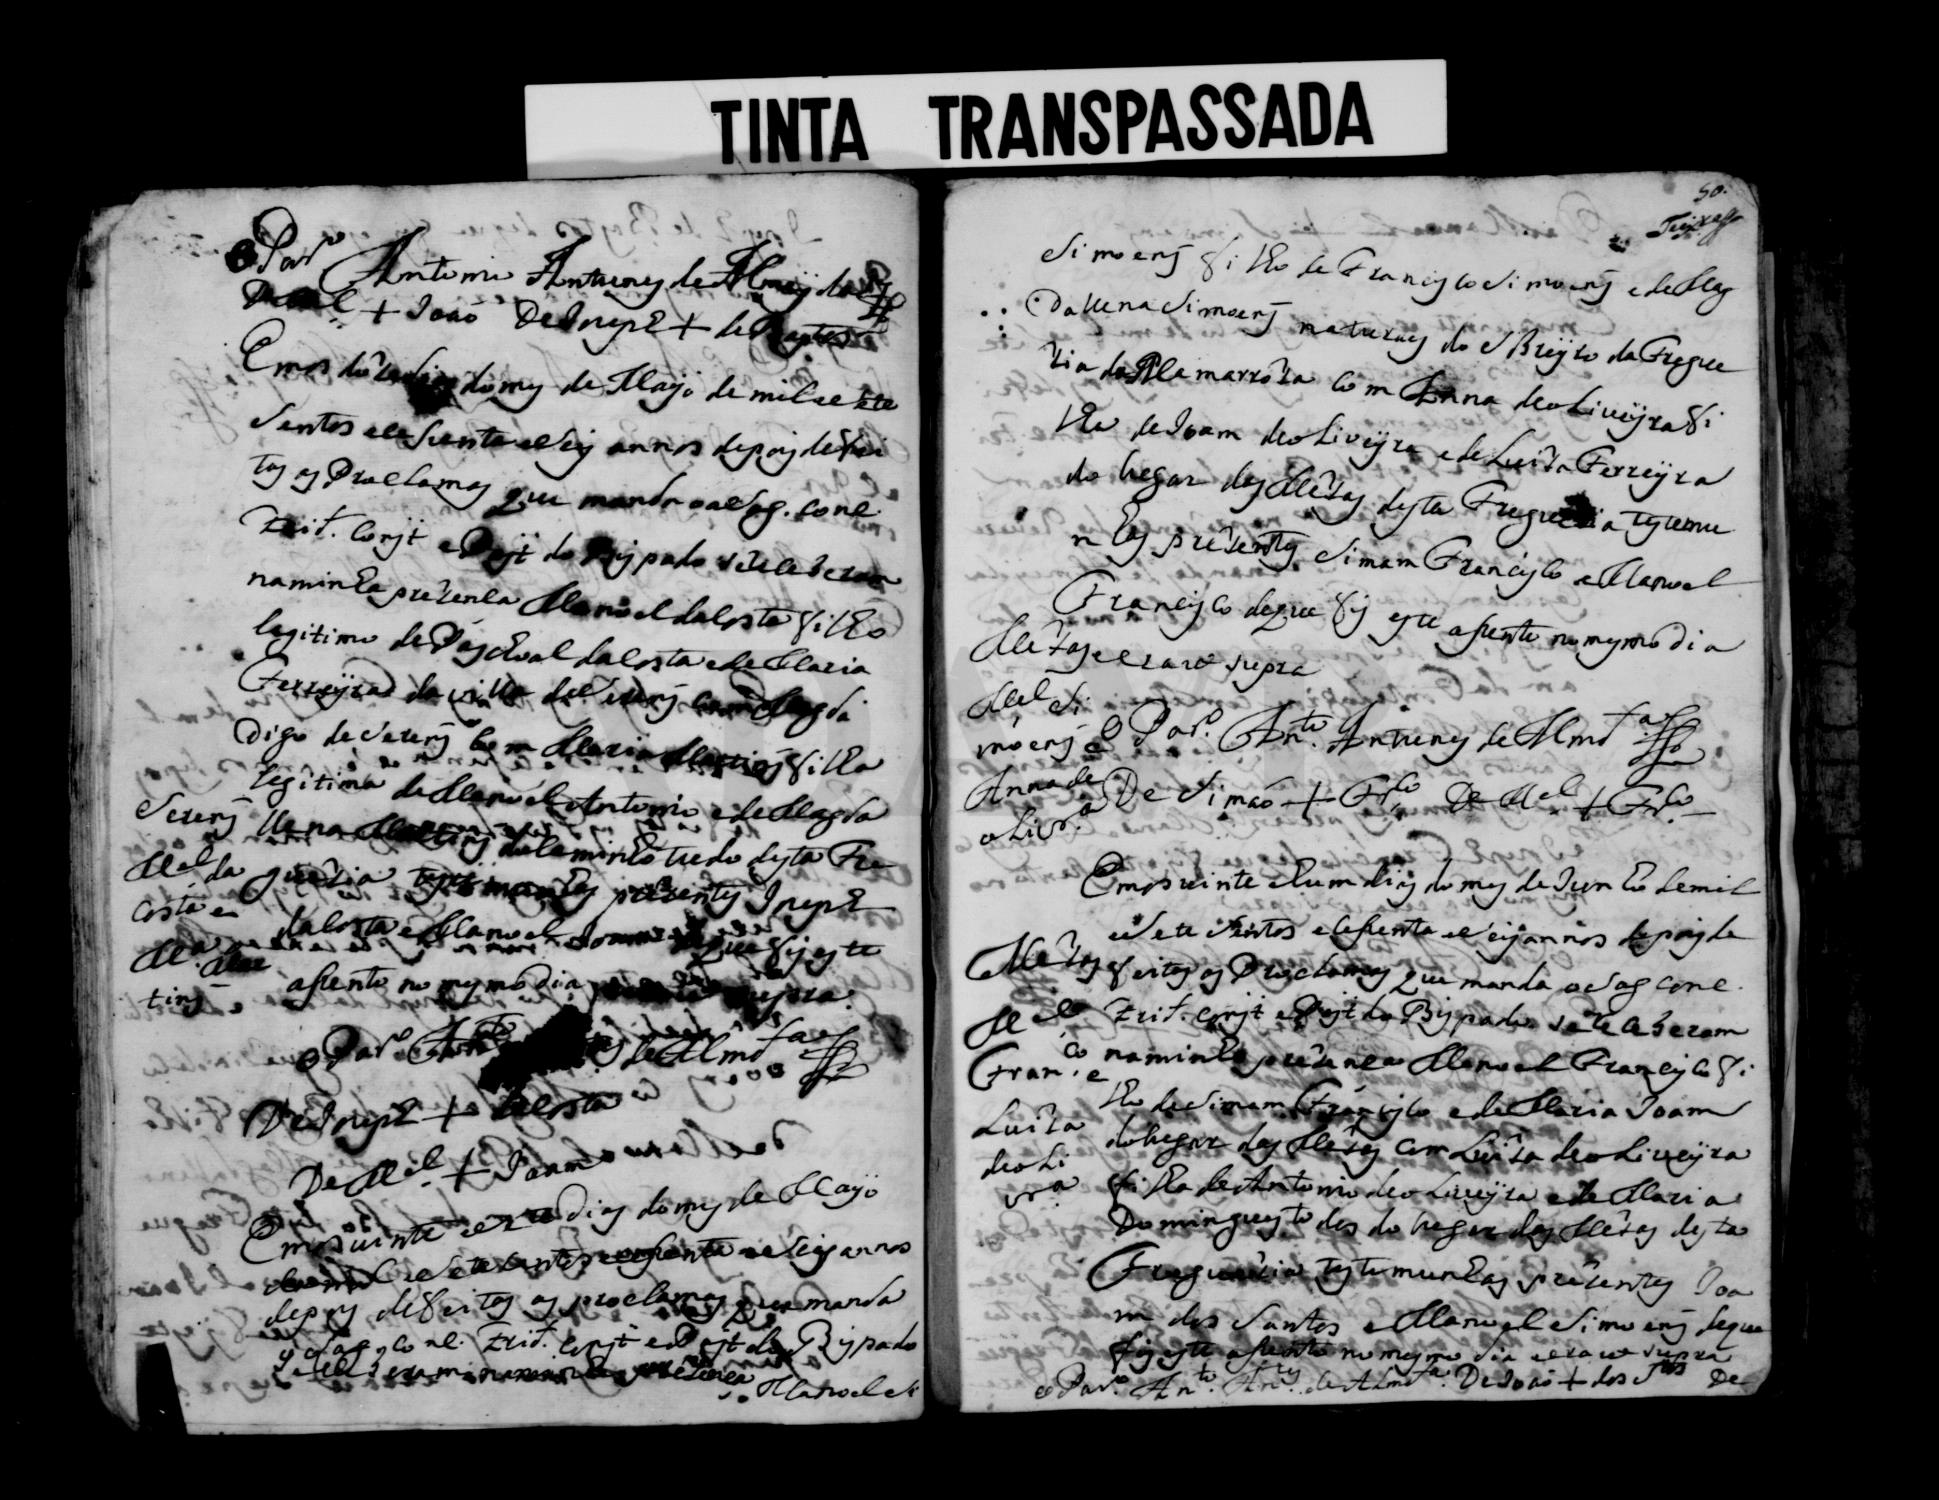 TINTA TRANSPASSADA
o Par.º Antonio Antunes de Almeyda
De + Joaõ De Joseph + de Bastos
Emos doze dias do mes de Mayo de mil e sete
sentos e sesenta e seis annos depois de fei
tos os Proclamas que manda o a sag. conc.
trid. const e Const do Bispado se selebraram
na minha prezensa Manoel da Costa filho
legitimo de Pascoal da Costa e de Maria
Ferreyra da villa de Serem com Magda
Digo de Serem com Maria Martins filha
legitima de Manoel Antonio e de Magda
lena Martins do Caminho tudo desta Fre
guezia testemunhas prezentes Joseph
da Costa e Manoel Joam de que fis este
asento no mesmo dia supra
Serem
M.el da
Costa e
M.a Mar
tins
o Par.º Ant.º de Almd.a
De Joseph + da Costa
De M.el + Joam
Emos vinte e sete dias do mes de Mayo
de mil e sete sentos e sesenta e seis annos
depois de feitos os proclamas que manda
o sag. conc. trid. const e Const do Bispado
se selebraram na minha prezensa Manoel
50.
Simoens filho de Francisco Simoens e de Mag
dallena Simoens naturaes do Sobreyro da Fregue
zia da Alamarroza com Anna de oLiveyra fi
lha de Joam de oLiveyra e de Luiza Ferreyra
do lugar das Mezas desta Freguezia testemu
nhas prezentes Simam Francisco e Manoel
Francisco de que fis este asento no mesmo dia
e era ut supra
Mezas
M.el Si
moens e
Anna de
oLivr.a
o Par.º Ant.º Antunes de Almd.a
De Simaõ + Fr.co De M.el + Fr.co
Emos vinte e hum dias do mes de Junho de mil
e sete sentos e sesenta e seis annos depois de
feitos os Proclamas que manda o sag conc.
trid. const e Const do Bispado se selebraram
na minha prezensa Manoel Francisco fi
lho de Simam Francisco e de Maria Joam
do lugar das Mezas com Luiza de oLiveyra
filha de Antonio de oLiveyra e de Maria
Domingues todos do lugar das Mezas desta
Freguezia testemunhas prezentes Joa
m dos Santos e Manoel Simoens de que
fis este asento no mesmo dia e era ut supra
Mezas
M.el
Fran.co e
Luiza
de oLi
vr.a
o Par.º Ant.º Ant.es de Almd.a De Joaõ + dos S.tos De